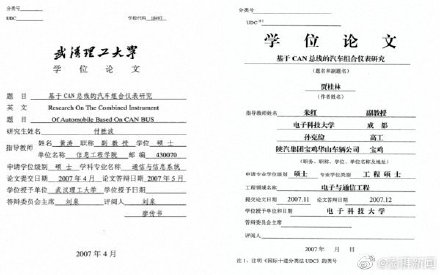 分类号
UDC
学校代码 10497
武汉理工大学
学 位 论 文
题 目 基于CAN总线的汽车组合仪表研究
英 文 Research On The Combined Instrument
题 目 Of Automobile Based On CAN BUS
研究生姓名 付胜波
指导教师 姓名 黄涛 职称 副教授 学位 硕士
单位名称 信息工程学院 邮编 430070
申请学位级别 硕士 学科专业名称 通信与信息系统
论文提交日期 2007年4月 论文答辩日期 2007年5月
学位授予单位 武汉理工大学 学位授予日期
答辩委员会主席 刘泉 评阅人 刘泉
廖传书
2007年4月
分类号 密级
UDC
学 位 论 文
基于CAN总线的汽车组合仪表研究
(题名和副题名)
贾桂林
(作者姓名)
指导教师姓名 朱红 副教授
电子科技大学 成都
孙克俭 高工
陕汽集团宝鸡华山车辆公司 宝鸡
(职务、职称、学位、单位名称及地址)
申请专业学位级别 硕士 专业学位类别 工程硕士
工程领域名称 电子与通信工程
提交论文日期 2007.11 论文答辩日期 2007.12
学位授予单位和日期 电子科技大学
答辩委员会主席
评阅人
2007年 月 日
注1:注明《国际十进分类法UDC》的类号
@澎湃新闻